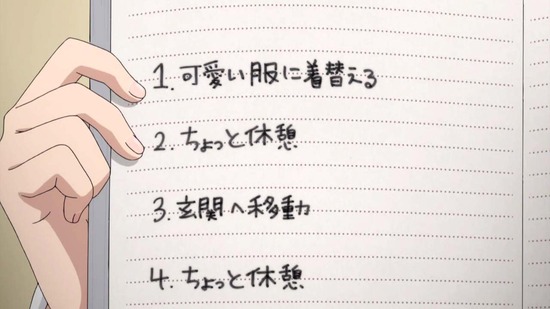 1.可愛い服に着替える
2.ちょっと休憩
3.玄関へ移動
4.ちょっと休憩